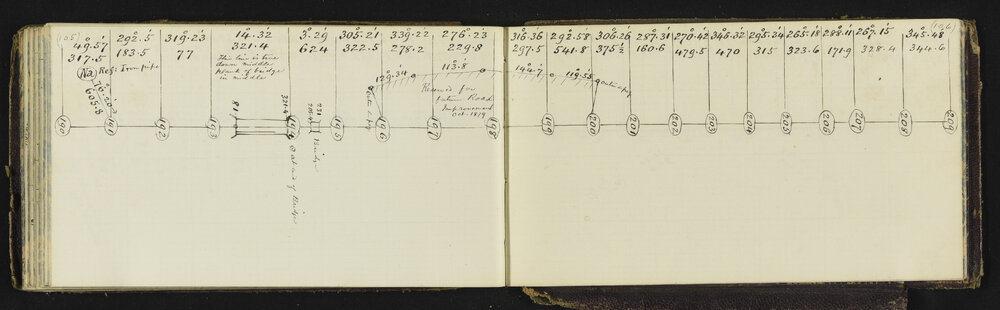 (195)
49°.57'
317.5
292°.5'
183.5
319°.23'
77
14°.32'
321.4
This line is line
down middle
plank of bridge
in middle
3°.29'
624
305°.21'
322.5
339°.22'
278.2
276°.23'
229.8
(Na) Ref: Iron pipe
605.8
129°.34'
113°.8'
Reserved for
future Road
Improvement
81
321.4
Bridge
O at end of Bridge
190
191
192
193
194
195
196
197
198
(196)
316°.36'
297.5
292°.58'
541.8
306°.26'
375½
287°.31'
160.6
270°.42'
479.5
346°.32'
470
295°.24'
315
265°.18'
323.6
288°.11'
171.9
267°.15'
328.4
345°.48'
344.6
144°.7'
119°.55'
199
200
201
202
203
204
205
206
207
208
209